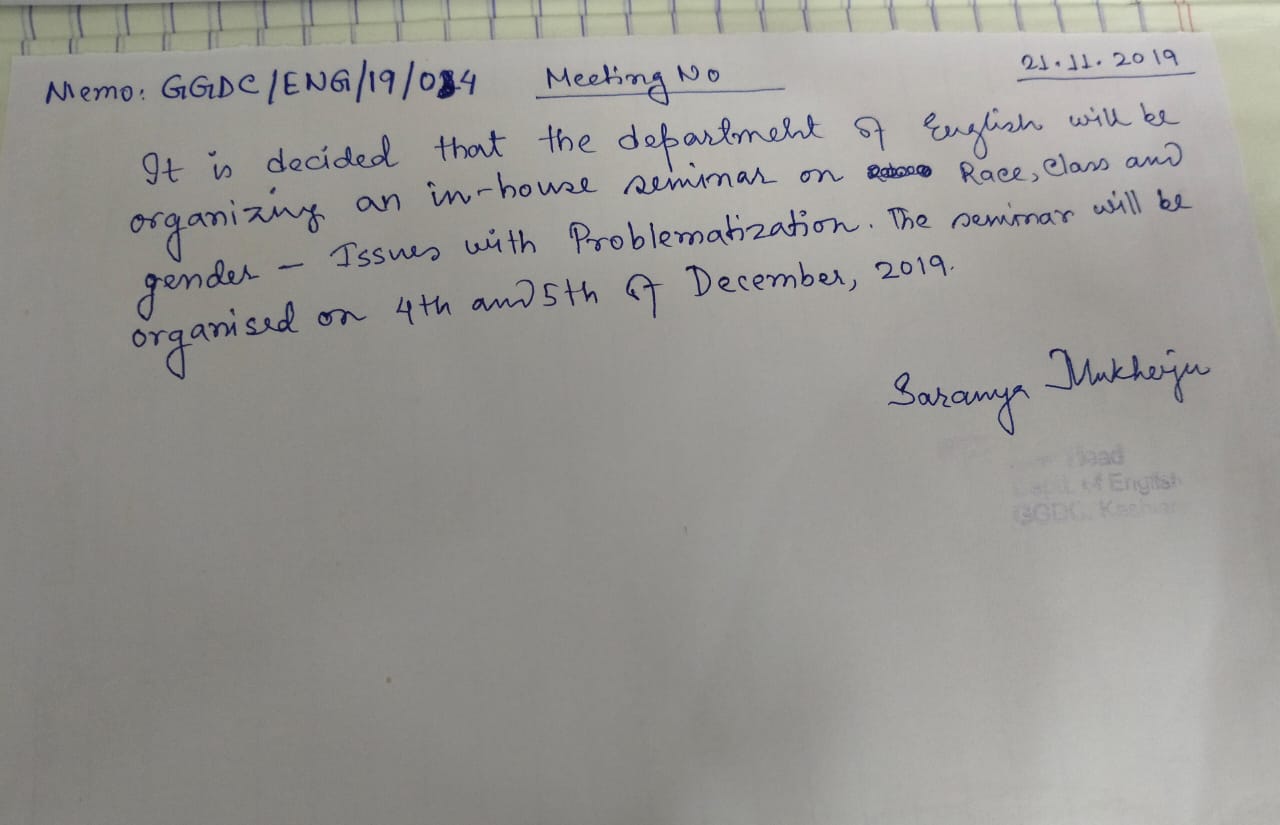 Memo: GGDC/ENG/19/034 Meeting No 21.11.2019
It is decided that the department of English will be
organizing an in-house seminar on Race, Class and
gender - Issues with Problematization. The seminar will be
organised on 4th and 5th of December, 2019.
Saranya Mukherjee
Head
Dept. of English
GGDC,